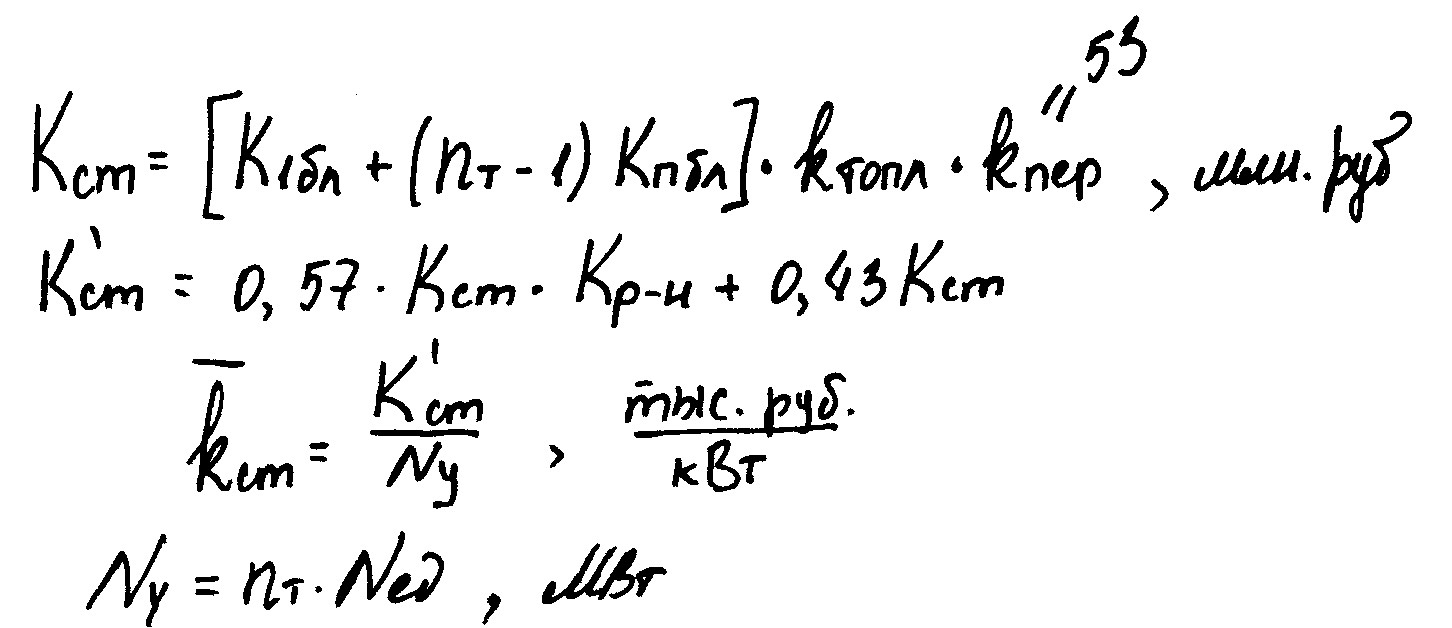 53
Kст = [K1бл + (nт - 1) Kпбл] · kтопл · kпер , млн. руб
K'ст = 0,57 · Kст · Kр-н + 0,43 Kст
k̅ст = K'ст / Nу , тыс. руб. / кВт
Nу = nт · Nед , МВт